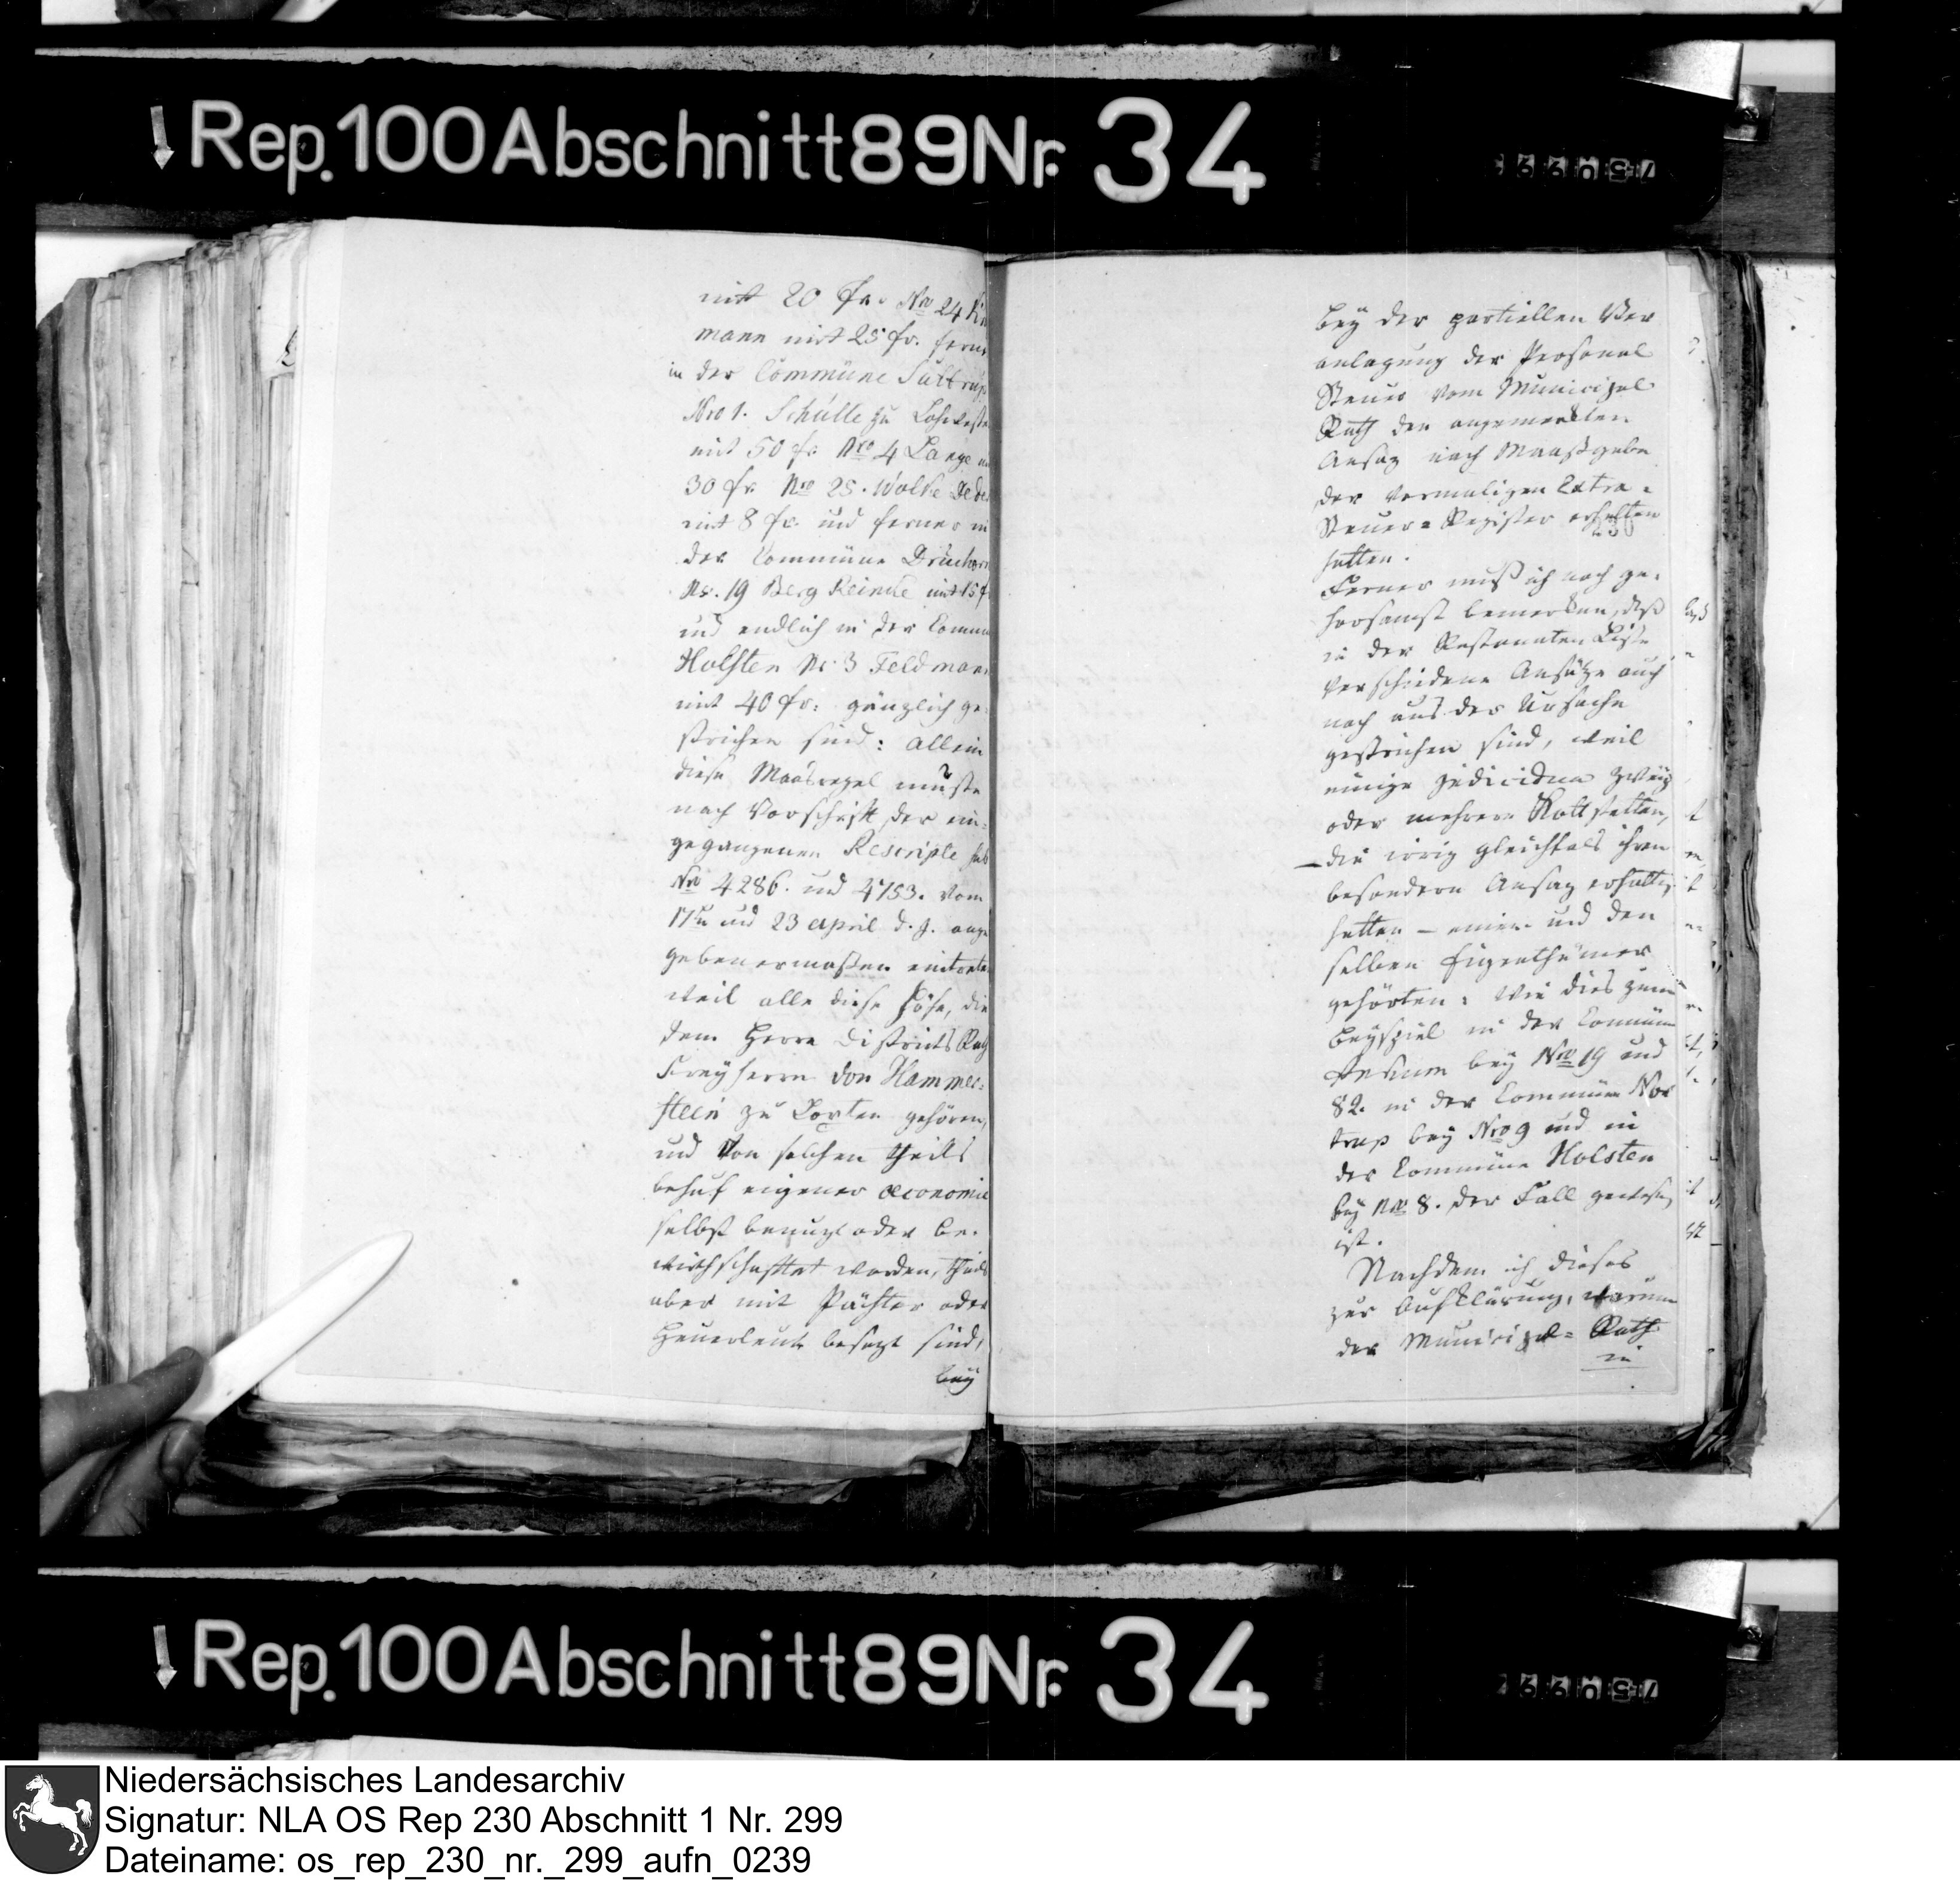 Rep. 100 Abschnitt 89 Nr. 34
mit 20 fr. Nro 24
mann mit 25 fr. ferner
in der Commüne Suttrup
Nro 1. Schulte zu
mit 50 fr. Nro 4 Lange
30 fr. Nro 25. Wolke
mit 8 fr. und ferner in
der Commüne Druchorn
Nr. 19 Berg Reinke mit 15 f
und endlich in der Comm
Holsten Nr. 3 Feldmann
mit 40 fr: gänzlich ge-
strichen sind: allein
diese Maasregel muste
nach Vorschrift der ein-
gegangenen Rescripte sub
Nro 4286. und 4753. vom
17n und 23 april d. J. ange
gebenermaßen eintreten
weil alle diese Höfe, die
dem Herrn Districts Rath
Freyherrn von Hammer-
stein zu Loxten gehören,
und von solchen theils
behuf eigener oeconomie
selbst benuzt oder be-
wirthschaftet werden, theils
aber mit Pächter oder
Heuerleute besezt sind,
bey
bey der partiellen Ver
anlagung der Personal
Steuer vom Municipal
Rath den angemerkten
Ansaz nach Maaßgabe
der vormaligen Extra-
Steuer-Register erhalten
hatten.
Ferner muß ich noch ge-
horsamst bemerken, daß
in der Restanten Liste
verschiedene Ansätze auch
noch aus der Ursache
gestrichen sind, weil
einige zwey
oder mehrere
– die irrig gleichfals ihren
besondern Ansaz erhalten
hatten – einem und den
selben Eigenthümer
gehörten: wie dies zum
Beyspiel in der Commüne
bey Nro 19 und
82. in der Commüne Nor
trup bey Nro 9 und in
der Commüne Holsten
bey Nro 8. der Fall gewesen
ist.
Nachdem ich dieses
zur Aufklärung, warum
der Municipal-Rath
in
Rep. 100 Abschnitt 89 Nr. 34
Niedersächsisches Landesarchiv
Signatur: NLA OS Rep 230 Abschnitt 1 Nr. 299
Dateiname: os_rep_230_nr._299_aufn_0239